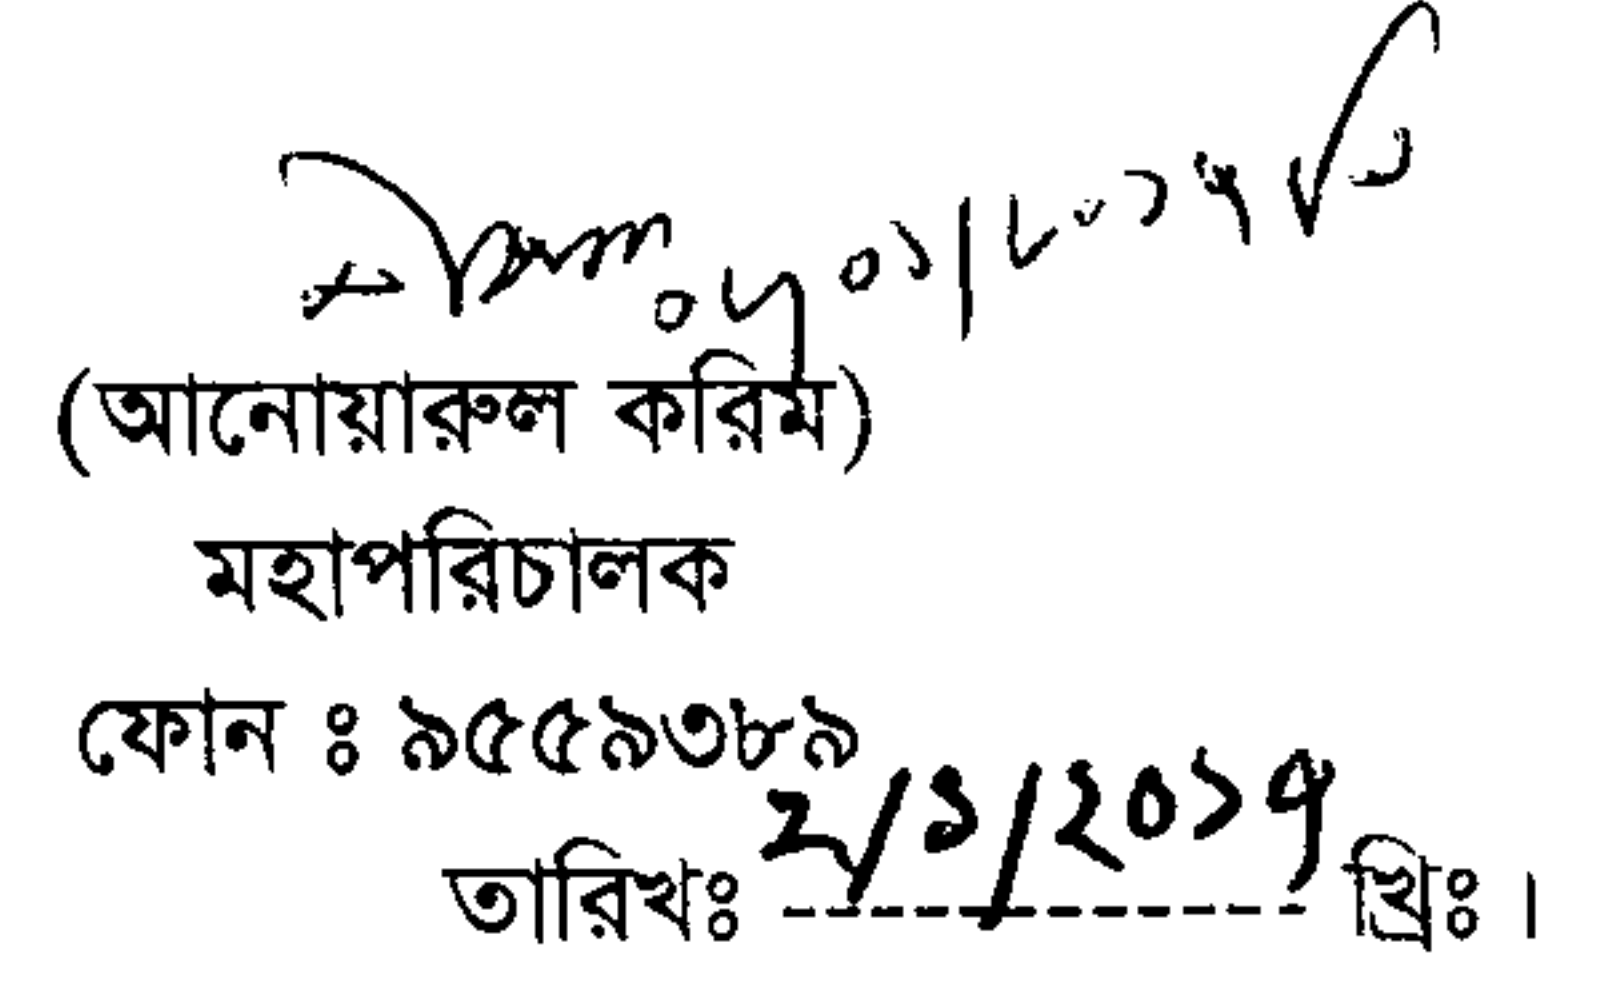 (আনোয়ারুল করিম)
মহাপরিচালক
ফোন ঃ ৯৫৫৯৩৮৯
তারিখঃ ২/১/২০১৭ খ্রিঃ।